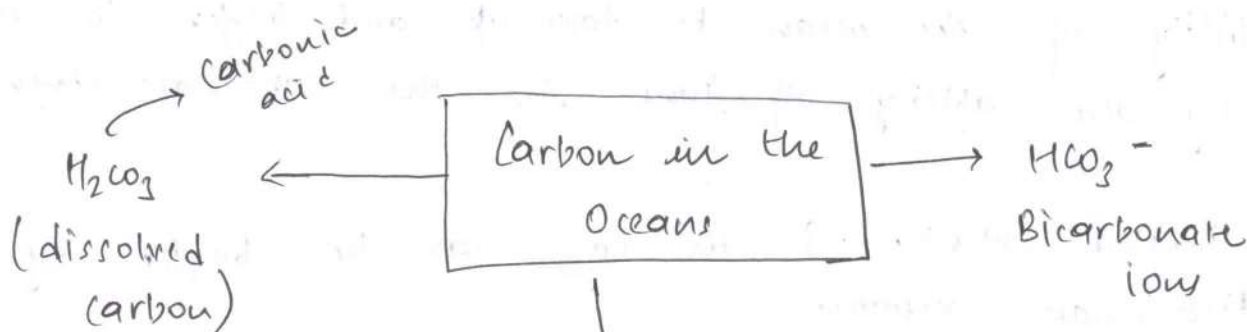 Carbonic
acid
H₂CO₃
(dissolved
carbon)
Carbon in the
Oceans
HCO₃⁻
Bicarbonate
ions